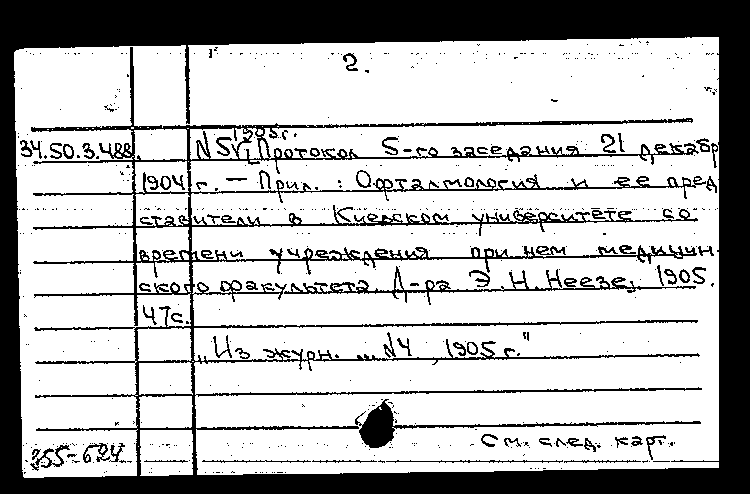 2.
1905г.
34.50.3.488. N5 [Протокол 5-го заседания 21 декабр
1904 г. — Прил.: Офталмология и ее пред
ставители в Киевском университете со
времени учреждения при нем медицин-
ского факультета. Д-ра Э.Н. Неезе, 1905.
47с.
„Из журн. ... N4, 1905 г."
См. след. карт.
355-624